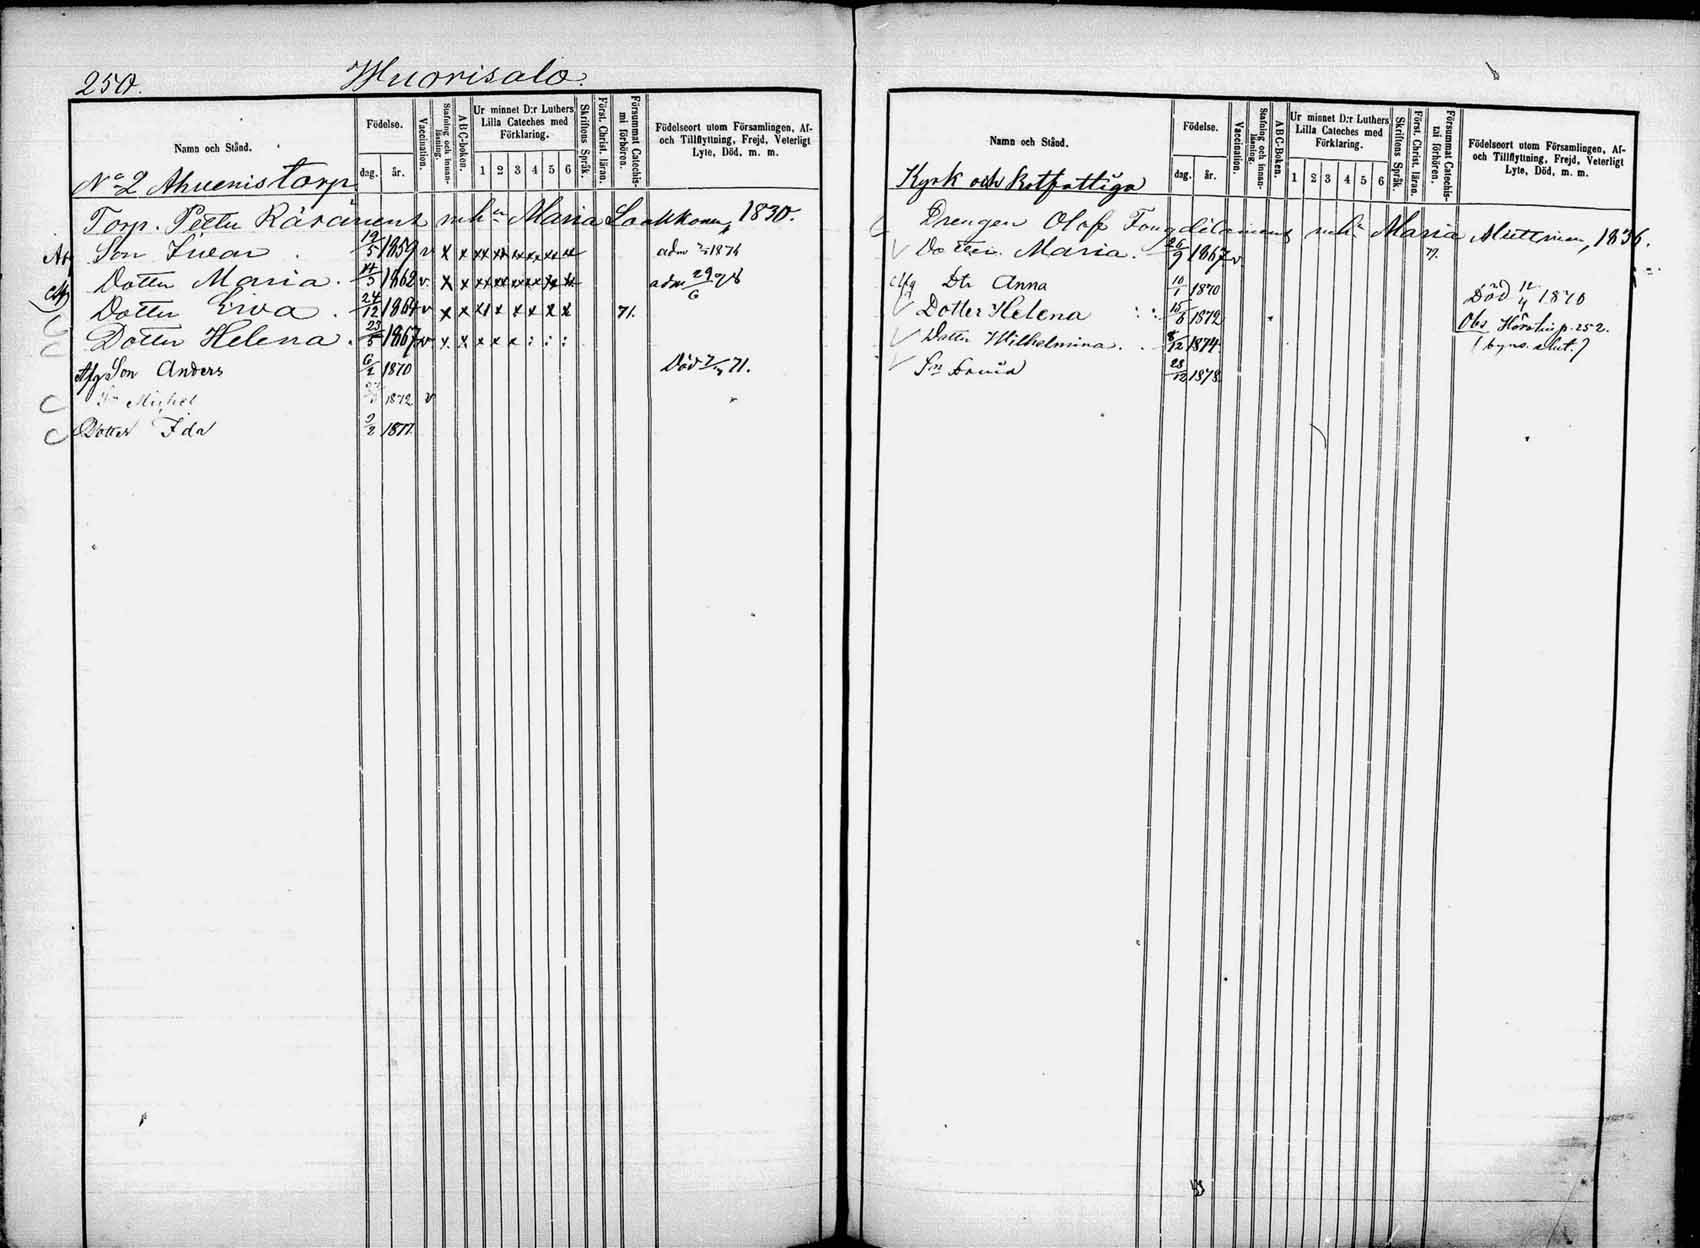 250.
Wuorisalo.
Namn och Stånd.
Födelse.
dag.
år.
Vaccination.
Stafning och innan-läsning.
ABC-boken.
Ur minnet D:r Luthers Lilla Cateches med Förklaring.
1 2 3 4 5 6
Skriftens Språk.
Först. Christ. läran.
Försummat Catechis-mi förhören.
Födelseort utom Församlingen, Af-
och Tillflyttning, Frejd, Veterligt
Lyte, Död. m. m.
No 2 Ahvenis torp
Torp. Petter Räsänens enka Maria Laakkonen, 1830.
Son Ivar 19/5 1859 v x x xx xx xx xx xx adm 1876
Dotter Maria. 14/3 1862 v. x x xx xx xx xx adm 29/6 78
Dotter Eva. 24/12 1864 v x x x x x x x x 71.
Dotter Helena. 23/5 1867 v x x x x x : : :
Afg. Son Anders 6/2 1870 Död 71.
Sn Michel 1872 v
Dotter Ida 9/2 1877.
Namn och Stånd.
Födelse.
dag.
år.
Vaccination.
Stafning och innan-läsning.
ABC-Boken.
Ur minnet D:r Luthers Lilla Cateches med Förklaring.
1 2 3 4 5 6
Skriftens Språk.
Först. Christ. läran.
Försummat Catechis-mi förhören.
Födelseort utom Församlingen, Af-
och Tillflyttning, Frejd, Veterligt
Lyte, Död. m. m.
Kyrk och Rotfattiga
Drengen Olof enka Maria 1836.
Dotter Maria. 26/9 1867 v. 77.
Afg Dtr Anna 10/1 1870 Död 1870
Dotter Helena 1872 Obs. p. 252.
Dotter Wilhelmina. 8/12 1874 (byns slut.)
Sn 28/12 1878.